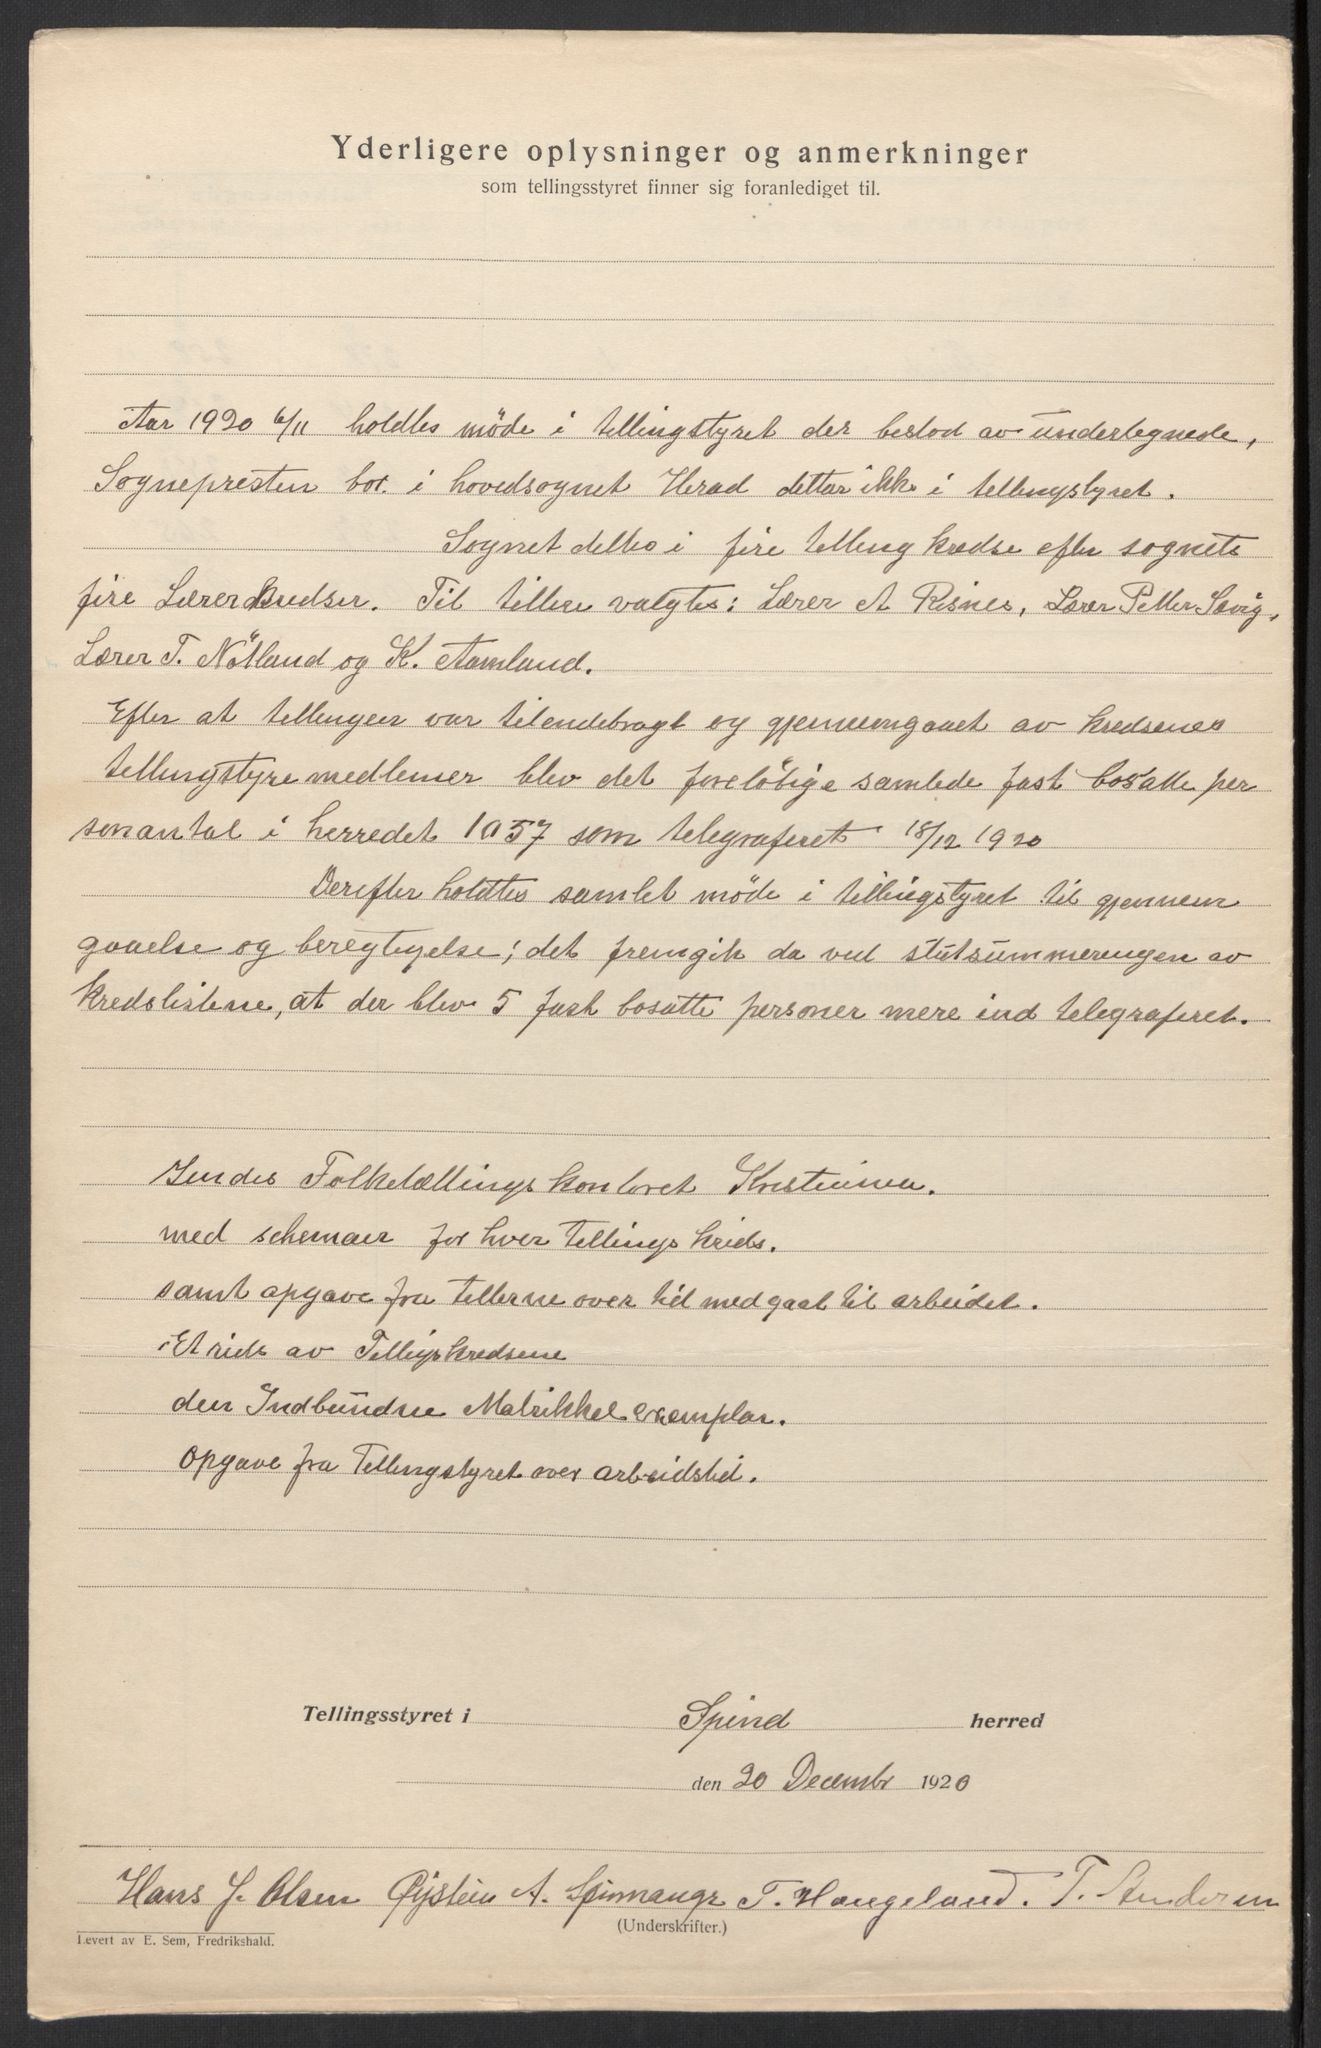 Yderligere oplysninger og anmerkninger
som tellingsstyret finner sig foranlediget til.
Aar 1920 6/11 holdtes möde i tellingstyret der bestod av undertegnede,
Sognepresten bor i hovedsognet Herad deltar ikke i tellingstyret.
Sognet deltes i fire telling kredse efter sognets
fire Lærerkredser. Til tellere valgtes: Lærer A Risnes, Lærer Petter Sævig,
Lærer T. Nötland og K. Aamland.
Efter at tellingen var tilendebragt og gjennemgaaet av kredsenes
tellingstyremedlemer blev det forelöbige samlede fast bosatte per
sonantal i herredet 1057 som telegraferet 18/12 1920
Derefter holdtes samlet möde i tellingstyret til gjennem
gaaelse og beregtigelse; det fremgik da ved slutsummeringen av
kredslistene, at der blev 5 fast bosatte personer mere end telegraferet.
Sendes Folketællingskontoret Kristiania.
med schemaer for hver Tellings kreds.
samt opgave fra tellerne over tid medgaat til arbeidet.
Et rids av Tellingskredsene
den Indbundne Matrikkel exemplar.
Opgave fra Tellingstyret over arbeidstid.
Tellingsstyret i Spind herred
den 20 Decembr 1920
Hans J. Olsen Øystein A. Spinnangr T. Haugeland. T. Andersen
(Underskrifter.)
Levert av E. Sem, Fredrikshald.